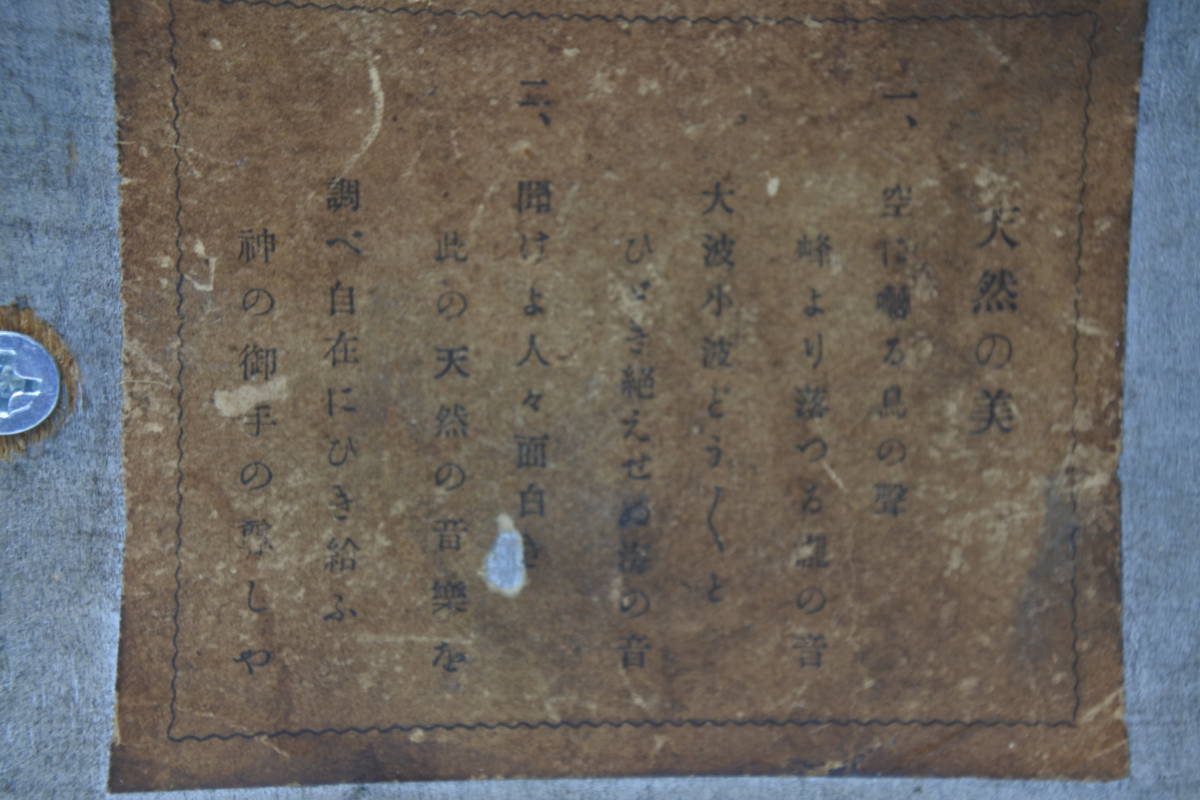 天然の美
一、空に囀る鳥の聲
峰より落つる瀧の音
大波小波どう〱と
ひゞき絶えせぬ海の音
二、聞けよ人々面白き
此の天然の音樂を
調べ自在にひき給ふ
神の御手の尊しや